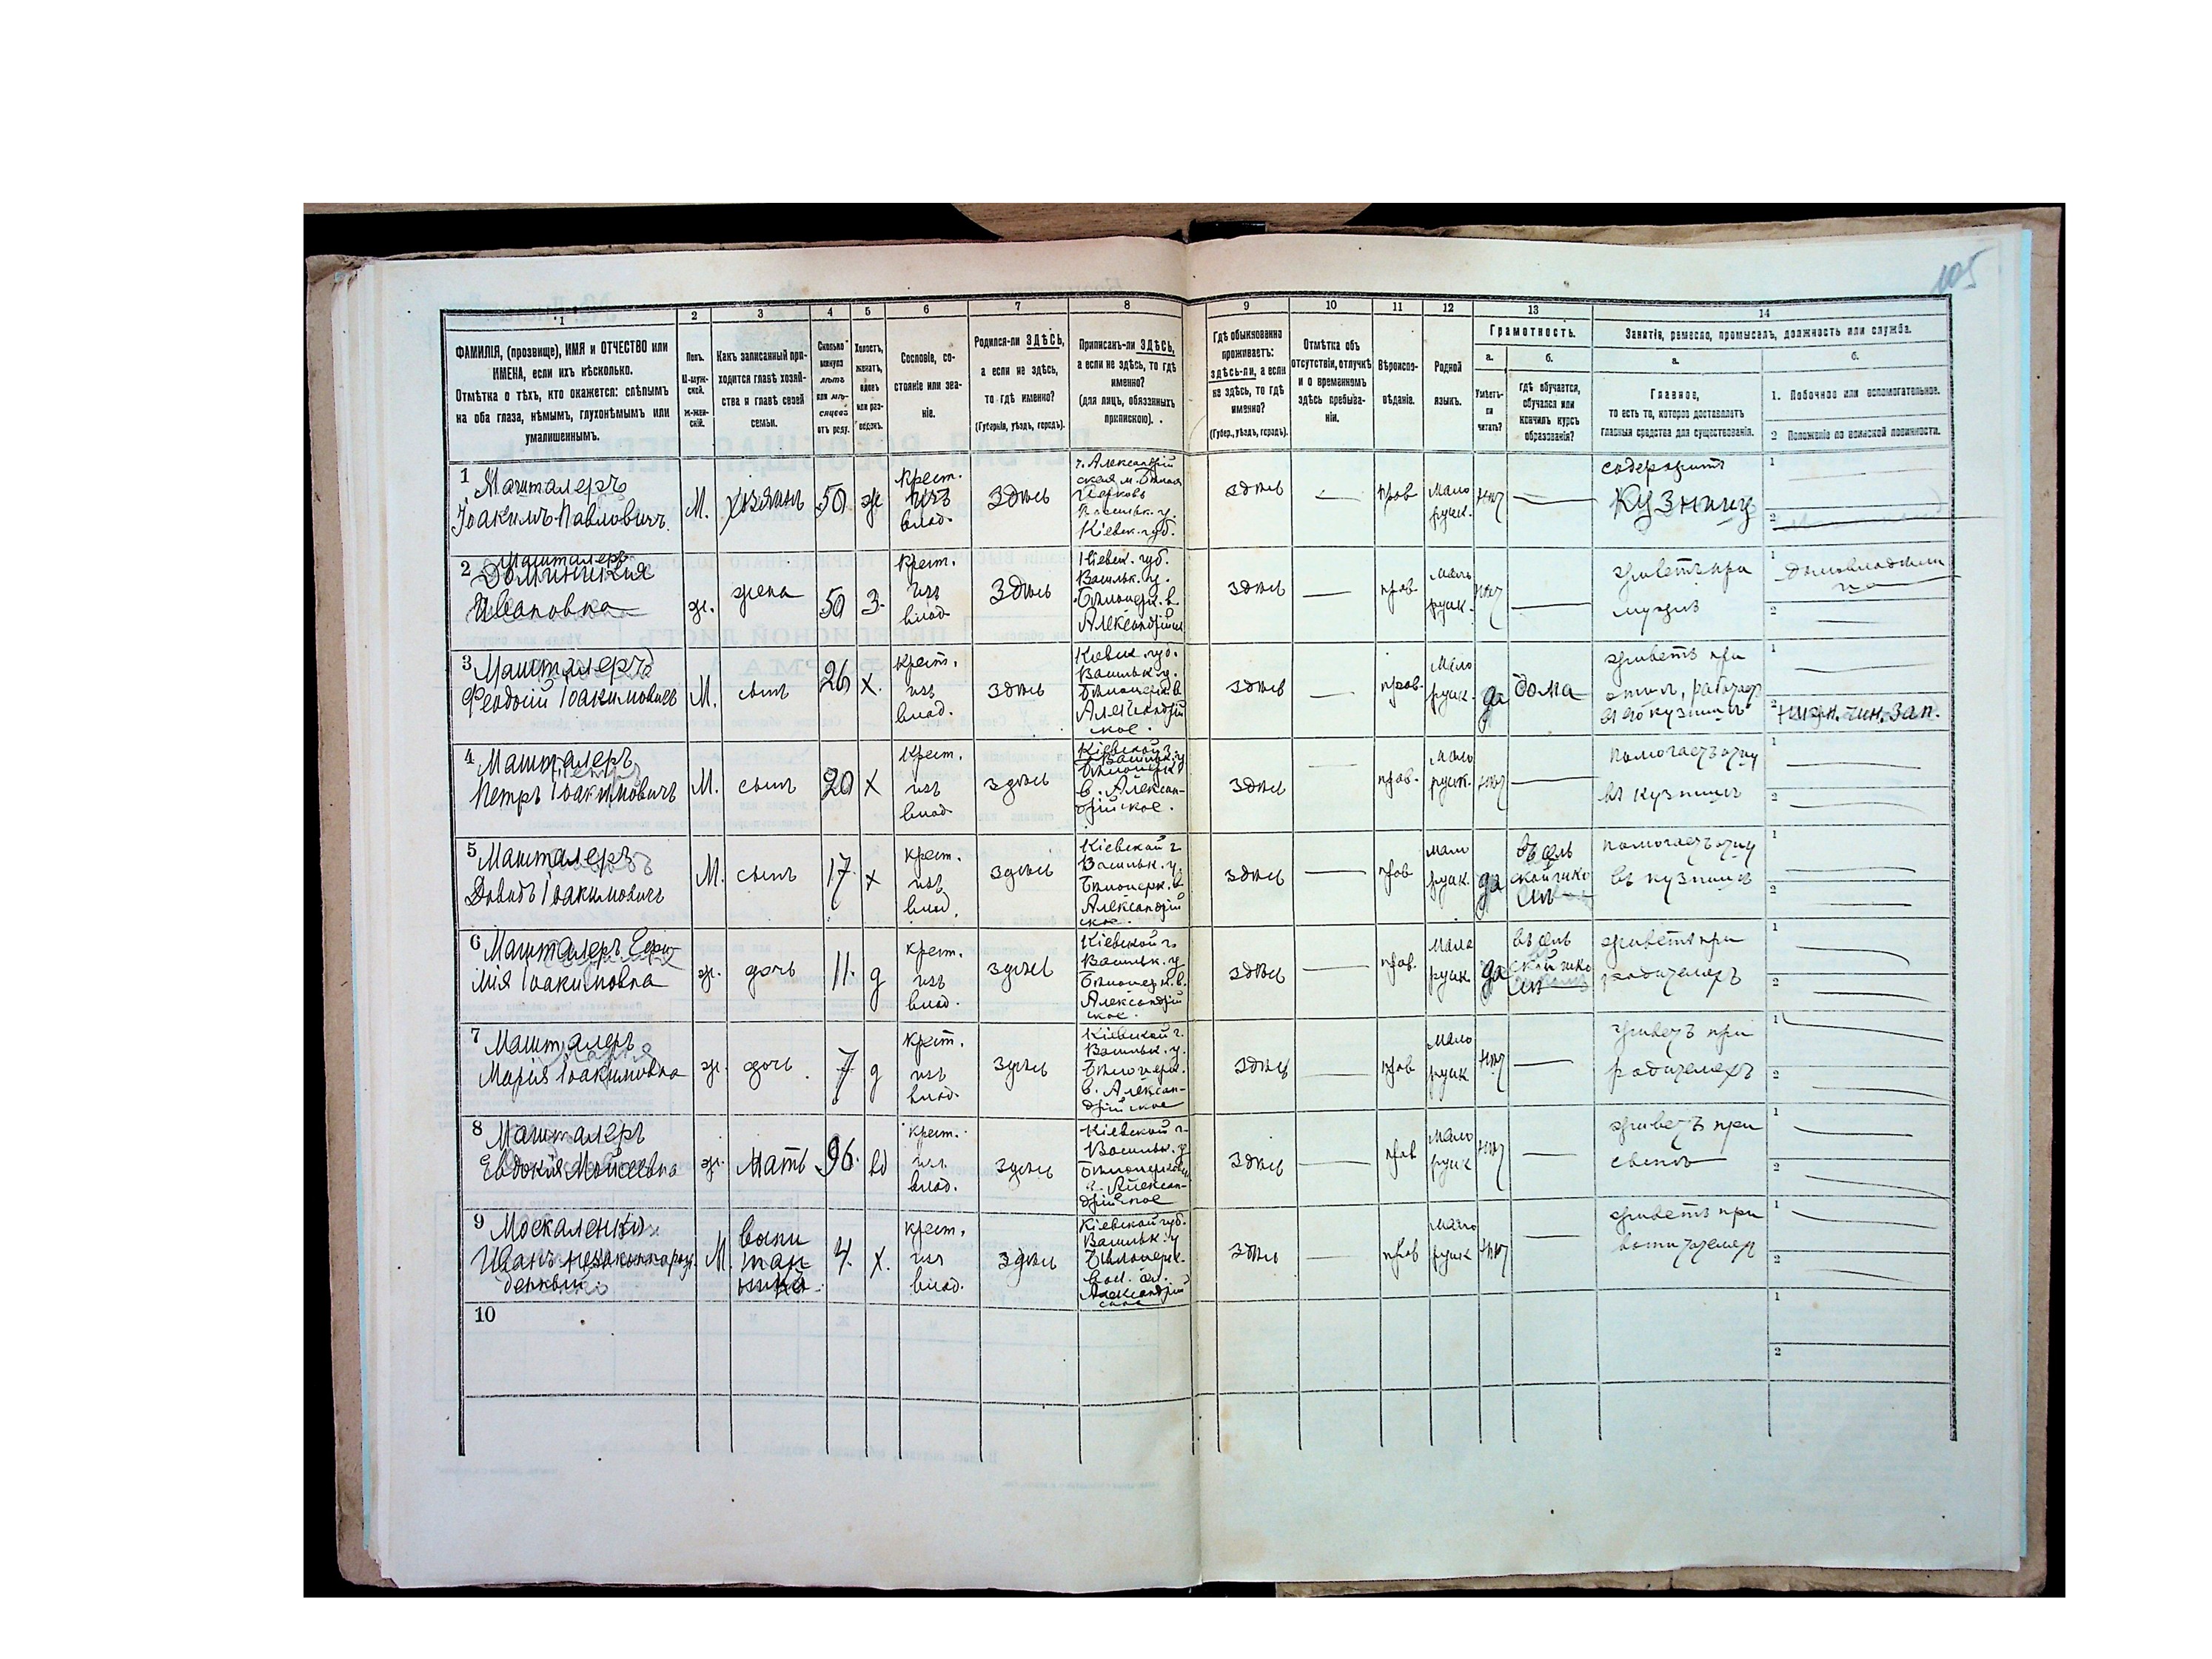 105
1 2 3 4 5 6 7 8 9 10 11 12 13 14
ФАМИЛІЯ, (прозвище), ИМЯ и ОТЧЕСТВО или
ИМЕНА, если ихъ нѣсколько.
Отмѣтка о тѣхъ, кто окажется: слѣпымъ
на оба глаза, нѣмымъ, глухонѣмымъ или
умалишеннымъ.
Полъ.
М-муж-
ской.
Ж-жен-
скій.
Какъ записанный при-
ходится главѣ хозяй-
ства и главѣ своей
семьи.
Сколько
минуло
лѣтъ
или мѣ-
сяцевъ
отъ роду.
Холостъ,
женатъ,
вдовъ
или раз-
веденъ.
Сословіе, со-
стояніе или зва-
ніе.
Родился-ли ЗДѢСЬ,
а если не здѣсь,
то гдѣ именно?
(Губернія, уѣздъ, городъ).
Приписанъ-ли ЗДѢСЬ,
а если не здѣсь, то гдѣ
именно?
(для лицъ, обязанныхъ
припискою).
Гдѣ обыкновенно
проживаетъ:
здѣсь-ли, а если
не здѣсь, то гдѣ
именно?
(Губер., уѣздъ, городъ).
Отмѣтка объ
отсутствіи, отлучкѣ
и о временномъ
здѣсь пребыва-
ніи.
Вѣроиспо-
вѣданіе.
Родной
языкъ.
Грамотность.
а.
Умѣетъ-
ли
читать?
б.
гдѣ обучается,
обучался или
кончилъ курсъ
образованія?
Занятіе, ремесло, промыселъ, должность или служба.
а.
Главное,
то есть то, которое доставляетъ
главныя средства для существованія.
б.
1. Побочное или вспомогательное.
2 Положеніе по воинской повинности.
1 Машталеръ
Іоакимъ Павловичъ
М.
хозяинъ
50
ж
крест.
изъ
влад.
здѣсь
Кіевск. губ.
здѣсь
—
прав
мало
русск.
нѣтъ
—
содержитъ
кузницу
1
2
2 Машталеръ
Доминикія
Ивановна
ж.
жена
50
З.
крест.
изъ
влад.
здѣсь
Кіевск. губ.
Васильк. у.
Бѣлоцерк. в.
здѣсь
—
прав.
мало
русск.
нѣтъ
—
живетъ при
мужѣ
1
2
3 Машталеръ
Феодосій Іоакимовичъ
М.
сынъ
26
х.
крест.
изъ
влад.
здѣсь
Кіевск. губ.
Васильк. у.
Бѣлоцерк. в
Александрій
ское.
здѣсь
—
прав.
мало
русск.
да
дома
живетъ при
1
2 нижн. чин. зап.
4 Машталеръ
Петръ Іоакимовичъ
М.
сынъ
20
х
крест.
изъ
влад.
здѣсь
Кіевской г.
Васильк. у
Бѣлоцерк.
в. Алексан-
дрійское.
здѣсь
—
прав.
мало
русск.
нѣтъ
—
помогаетъ отцу
въ кузницѣ
1
2
5 Машталеръ
Давидъ Іоакимовичъ
М.
сынъ
17
х
крест.
изъ
влад.
здѣсь
Кіевской г
Васильк. у.
Бѣлоцерк. в
Александрій
ское.
здѣсь
—
прав
мало
русск.
да
въ сель
ской шко
лѣ
помогаетъ отцу
въ кузницѣ
1
2
6 Машталеръ
Іоакимовна
ж.
дочь
11.
д
крест.
изъ
влад.
здѣсь
Кіевской г.
Васильк. у.
Бѣлоцерк. в.
Александрій
ское.
здѣсь
—
прав.
мало
русск.
да
въ сель
ской шко
лѣ
живетъ при
родителехъ
1
2
7 Машталеръ
Марія Іоакимовна
ж.
дочь
7
д
крест.
изъ
влад.
здѣсь
Кіевской г.
Васильк. у.
Бѣлоцерк.
в. Алексан-
дрійское
здѣсь
—
прав
мало
русск
нѣтъ
—
живетъ при
родителехъ
1
2
8 Машталеръ
Евдокія Мойсеевна
ж.
мать
96.
вд
крест.
изъ
влад.
здѣсь
Кіевской г.
Васильк. у
в. Алексан-
дрійское
здѣсь
—
прав
мало
русск
нѣтъ
—
живетъ при
1
2
9 Москаленко
Иванъ незаконнорож
денный
М.
4.
х.
крест.
изъ
влад.
здѣсь
Кіевской губ.
Васильк. у
Бѣлоцерк.
здѣсь
—
прав
мало
русск
нѣтъ
—
живетъ при
1
2
10
1
2